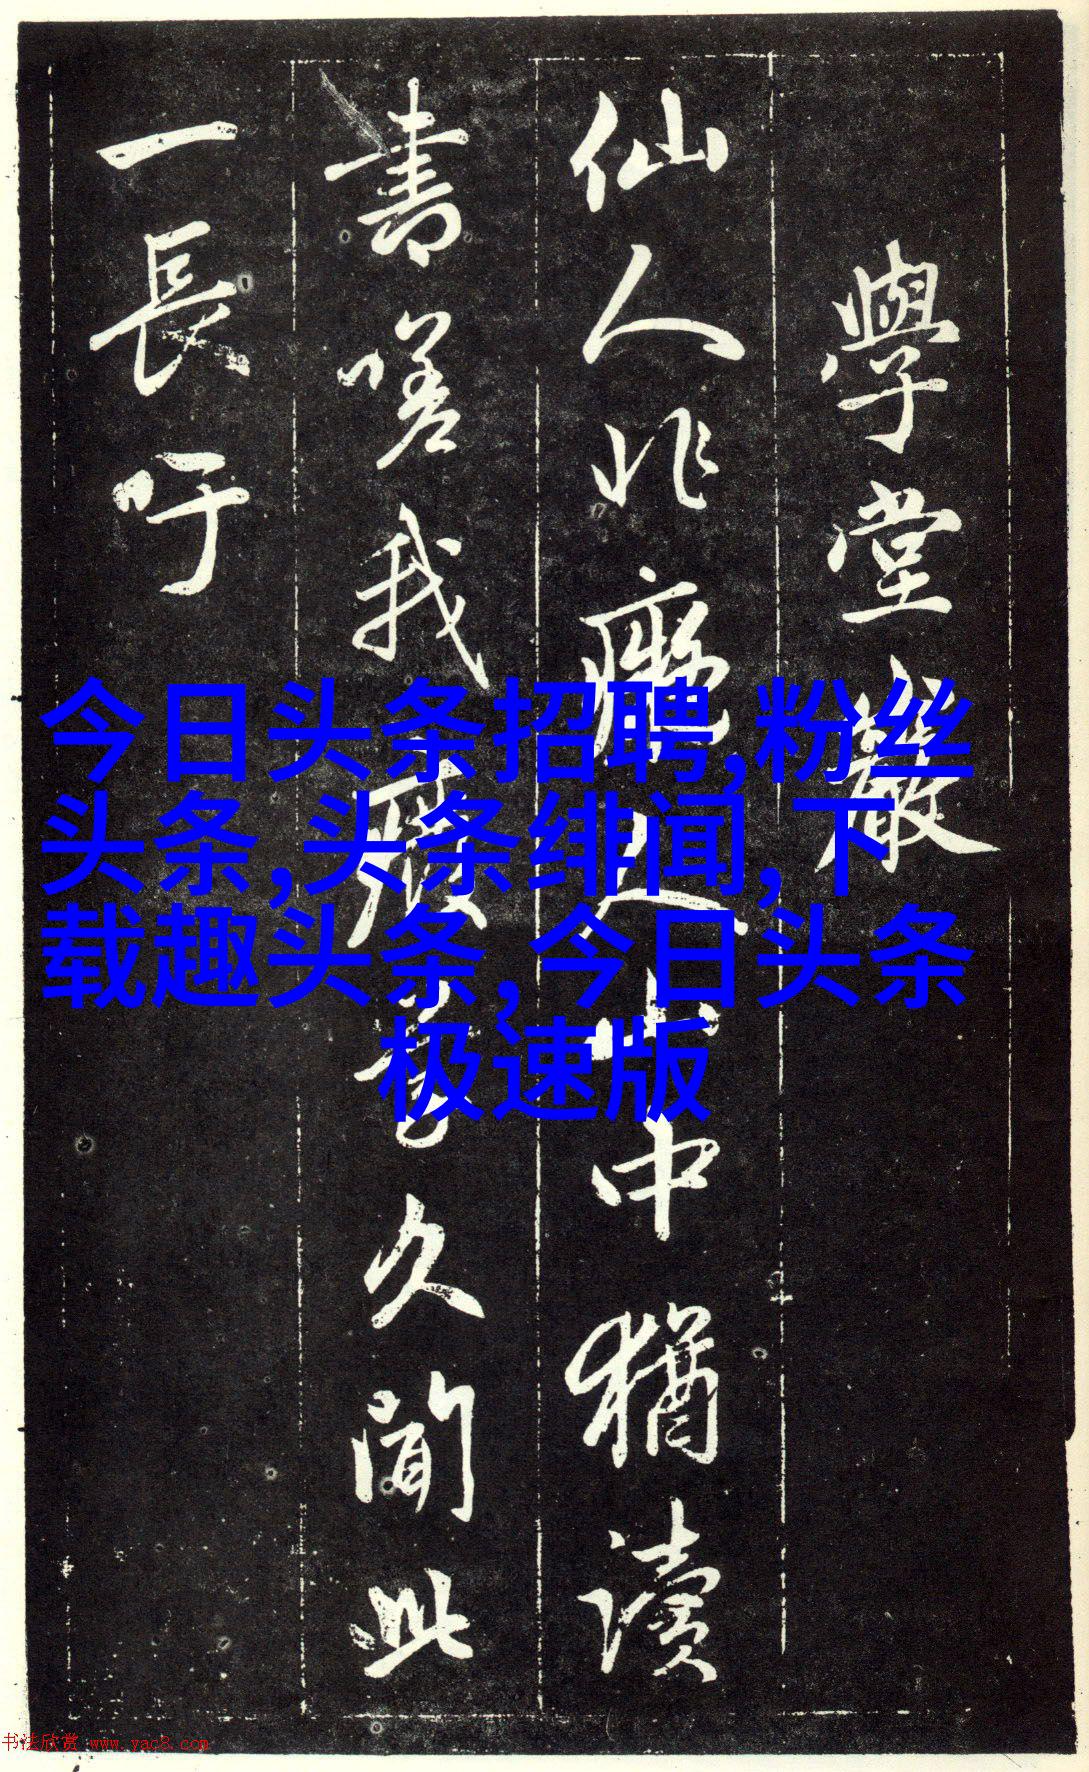 學堂巖
仙人非癡人山中猶讀
書嗟我廢書久聞此
一長吁
今日头条招聘,粉丝
头条,头条绯闻,下
载趣头条,今日头条
极速版
书法欣赏 www.yac8.com